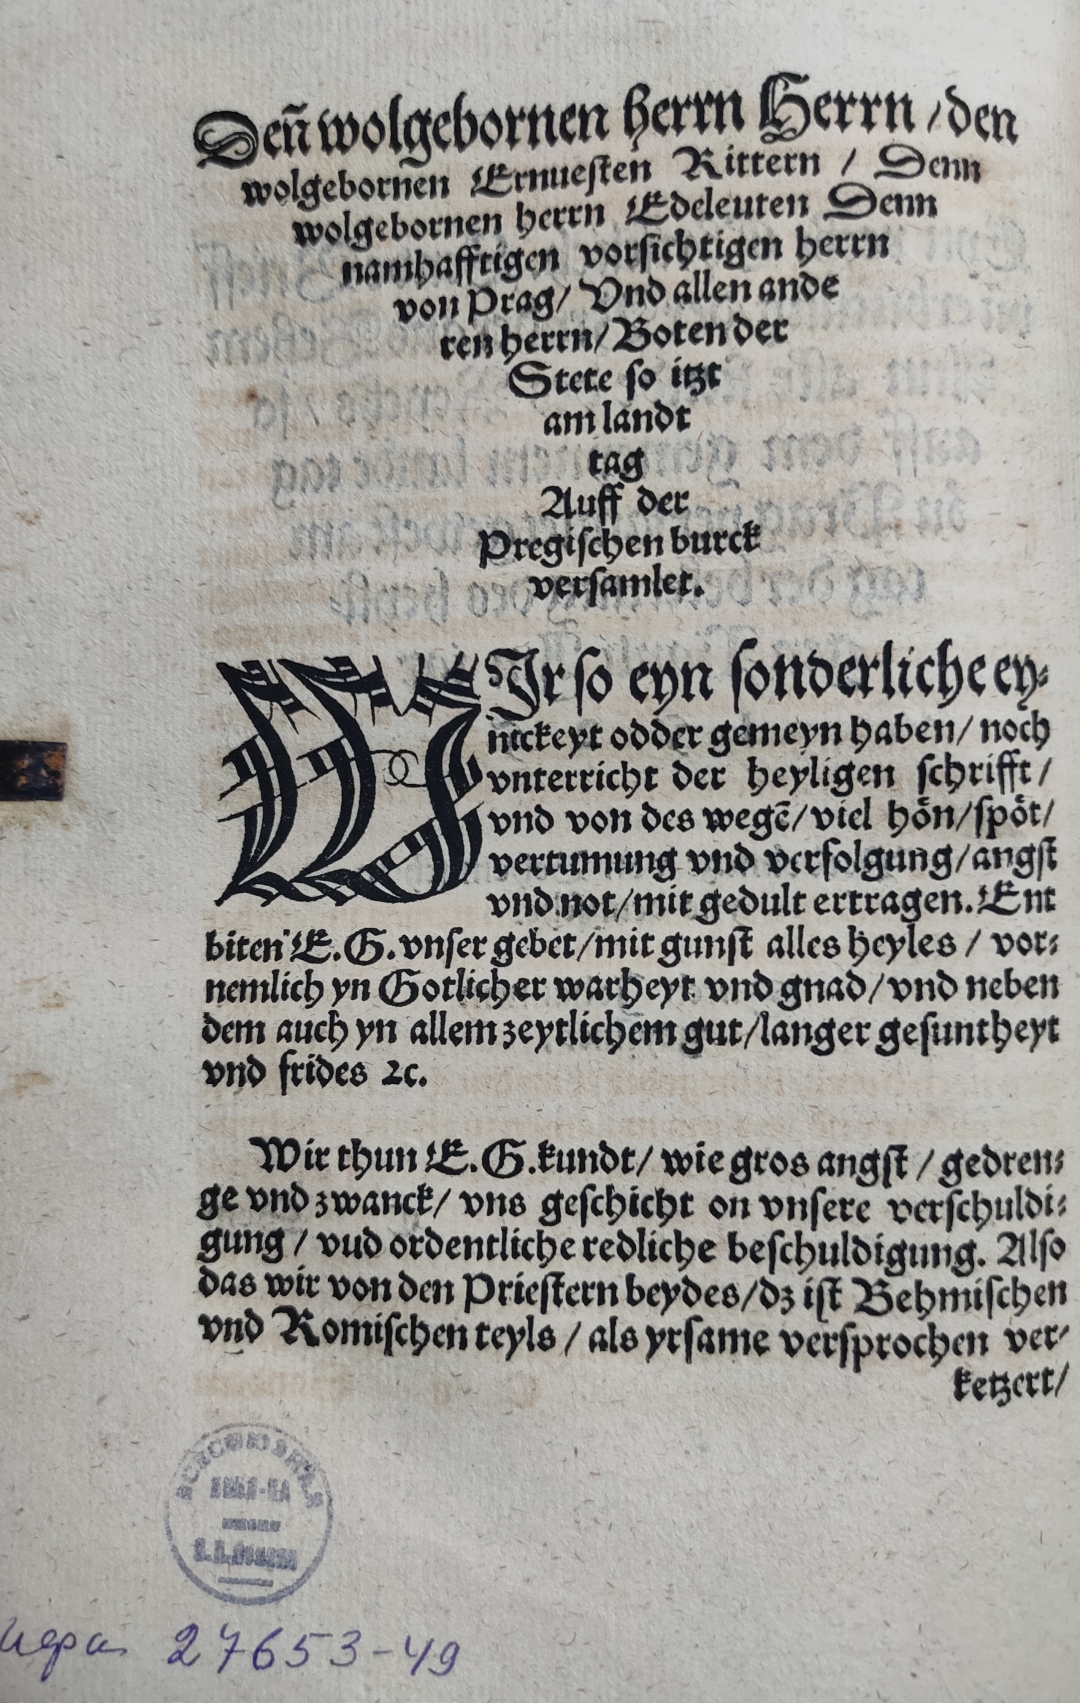 Deñ wolgebornen herrn Herrn / den
wolgebornen Ernuesten Rittern / Denn
wolgebornen herrn Edeleuten Denn
namhafftigen vorsichtigen herrn
von Prag / Vnd allen ande
ren herrn / Boten der
Stete so itzt
am landt
tag
Auff der
Pregischen burck
versamlet.
WIr so eyn sonderliche ey⸗
nickeyt odder gemeyn haben / noch
vnterricht der heyligen schrifft /
vnd von des wegẽ / viel hön / spöt /
vertumung vnd verfolgung / angst
vnd not / mit gedult ertragen. Ent
biten E. G. vnser gebet / mit gunst alles heyles / vor⸗
nemlich yn Gotlicher warheyt vnd gnad / vnd neben
dem auch yn allem zeytlichem gut / langer gesuntheyt
vnd frides ⁊c.
Wir thun E. G. kundt / wie gros angst / gedren⸗
ge vnd zwanck / vns geschicht on vnsere verschuldi⸗
gung / vud ordentliche redliche beschuldigung. Also
das wir von den Priestern beydes / dz ist Behmischen
vnd Romischen teyls / als yrsame versprochen ver⸗
ketzert /
27653-49